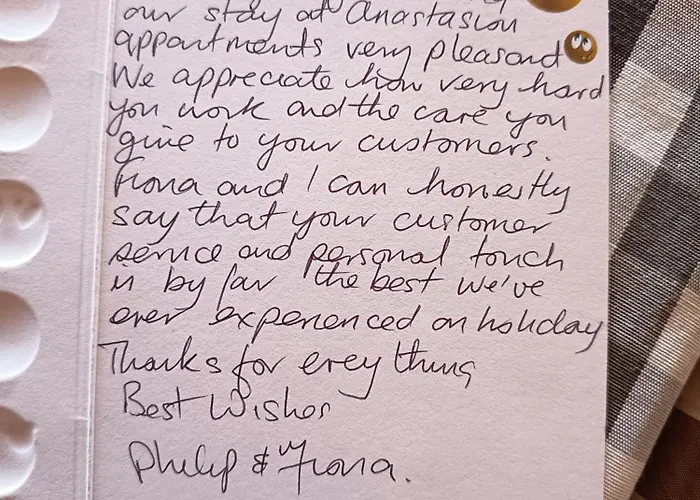 our stay at Anastasion
appartments very pleasand
We appreciate how very hard
you work and the care you
give to your customers.
Fiona and I can honestly
say that your customer
service and personal touch
is by far the best we've
ever experienced on holiday
Thanks for erey thing
Best Wishes
Philip & Fiona.